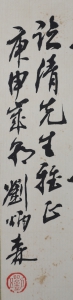 詒清先生雅正
庚申歲邻劉炳森